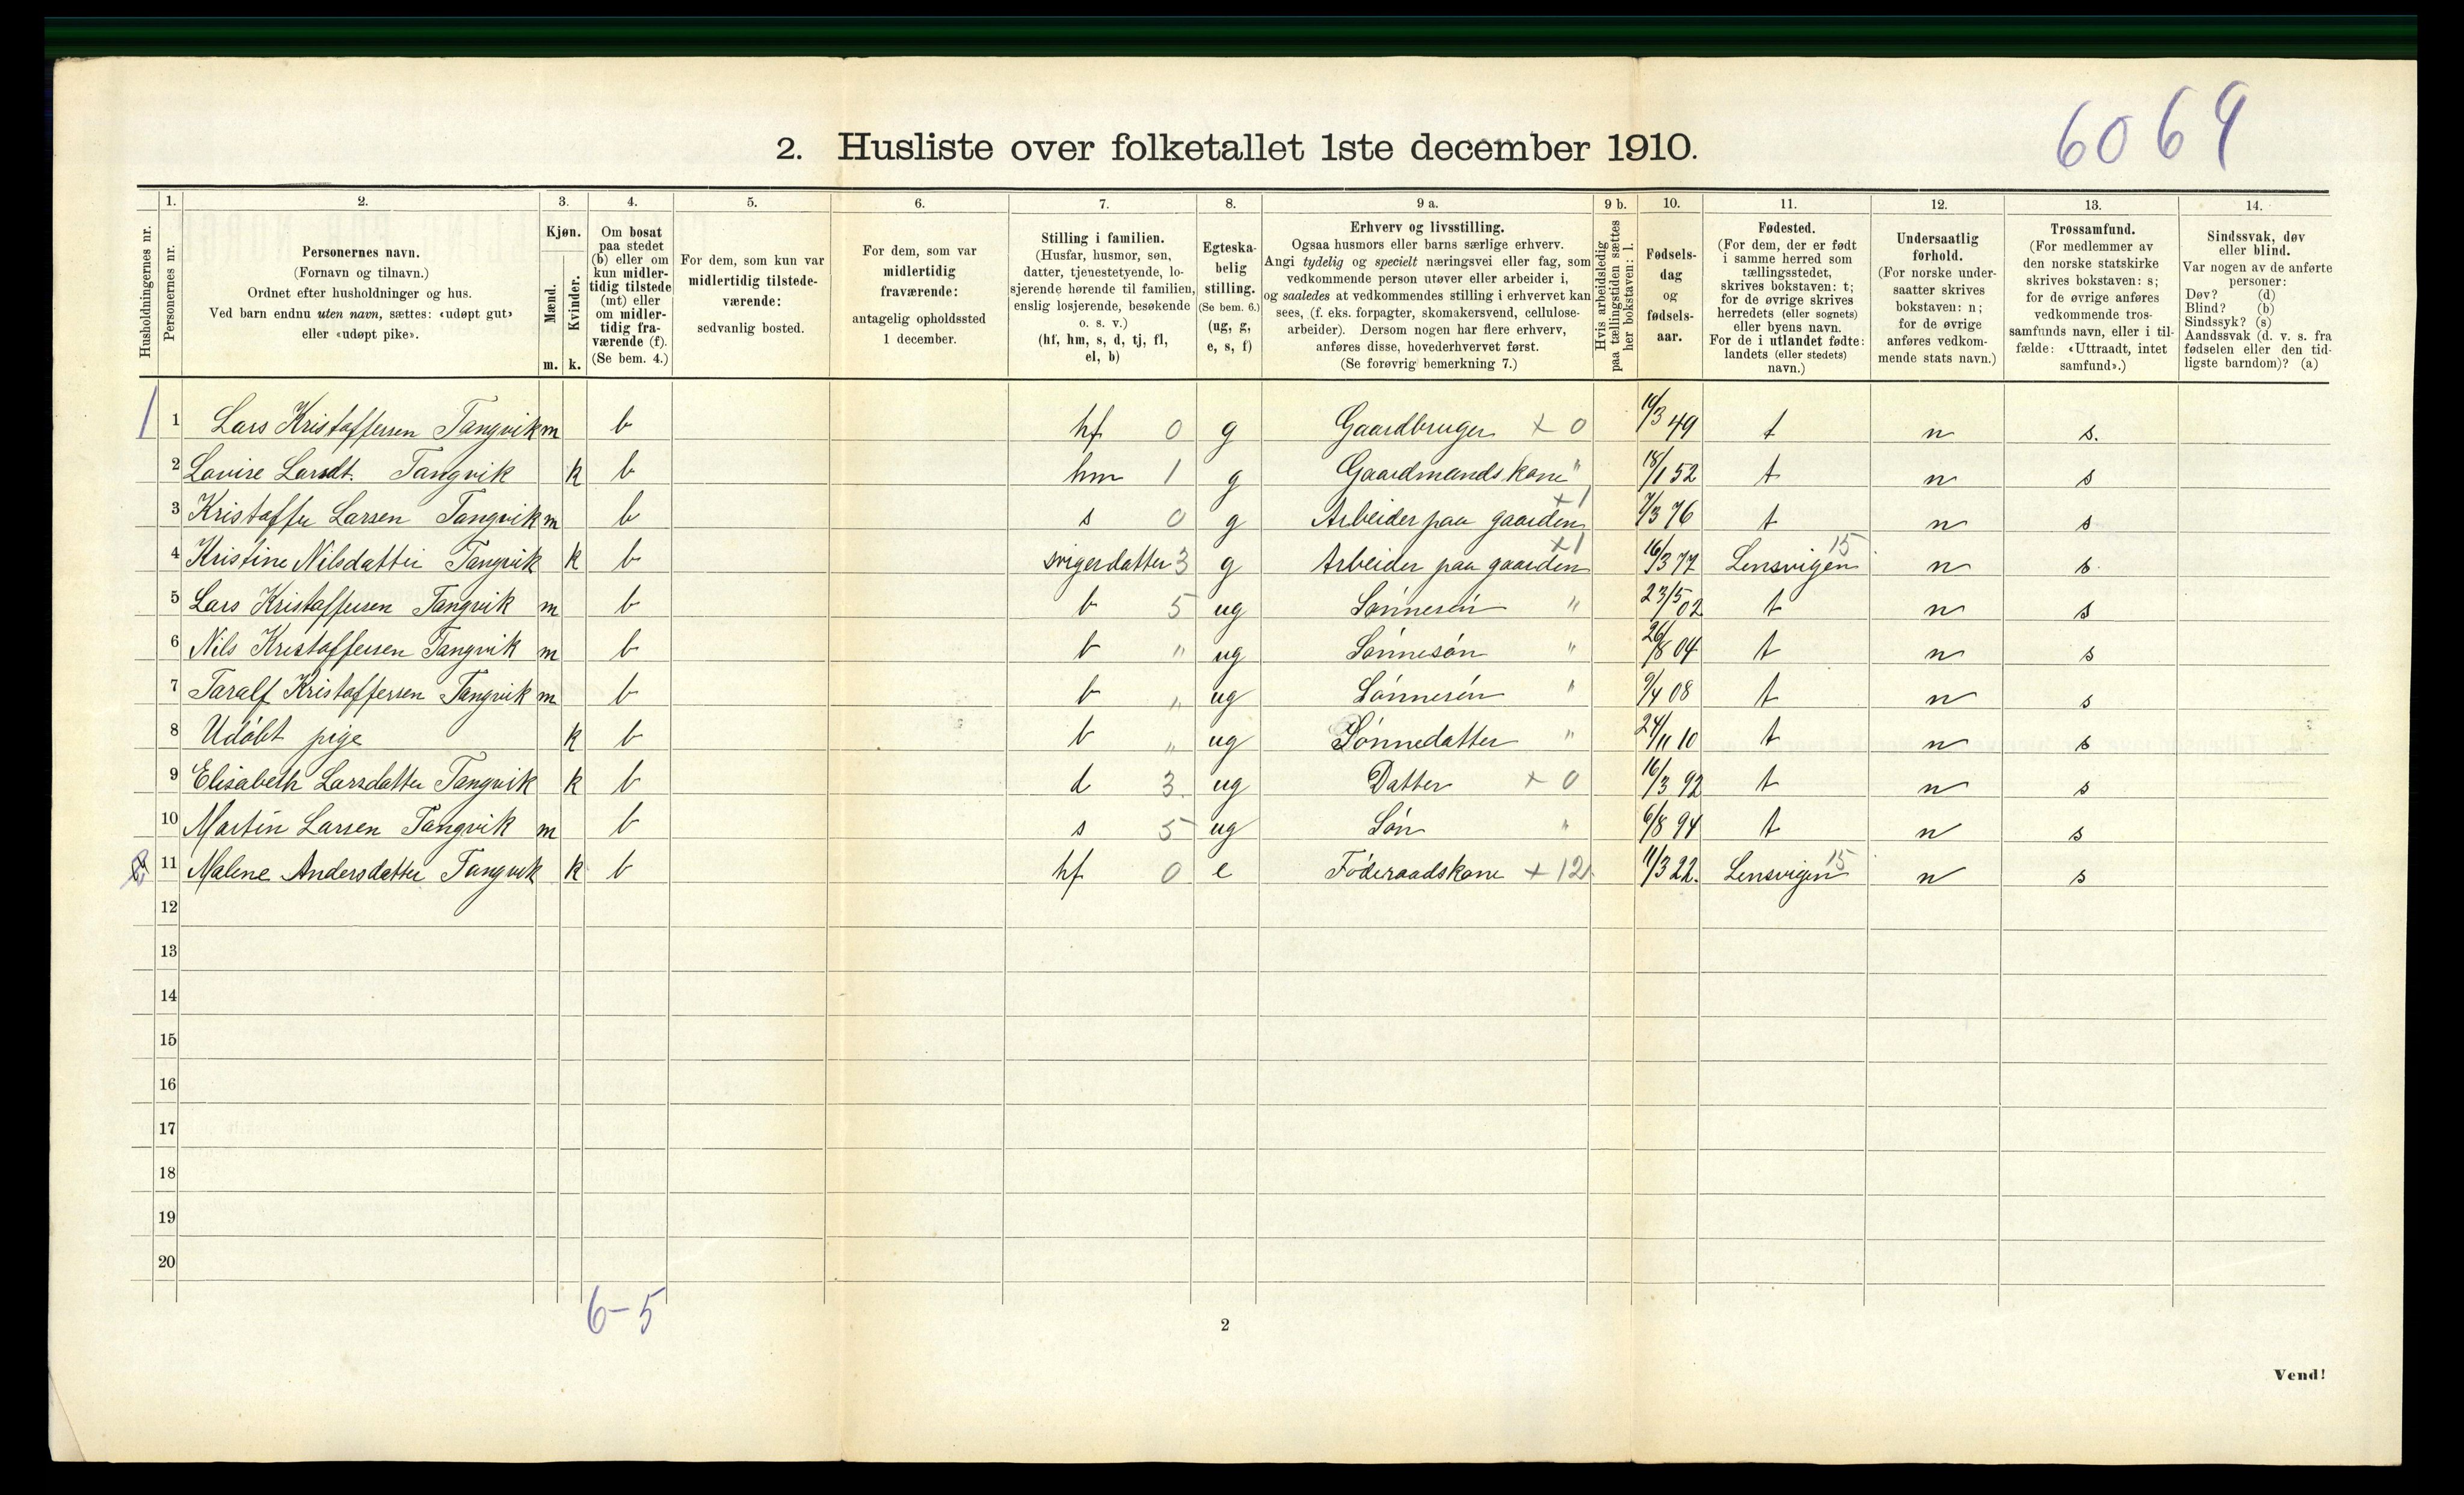 6069
2. Husliste over folketallet 1ste december 1910.
Husholdningernes nr.
1. Personernes nr.
2. Personernes navn.
(Fornavn og tilnavn.)
Ordnet efter husholdninger og hus.
Ved barn endnu uten navn, sættes: «udøpt gut»
eller «udøpt pike».
3. Kjøn.
Mænd. m.
Kvinder. k.
4. Om bosat
paa stedet
(b) eller om
kun midler-
tidig tilstede
(mt) eller
om midler-
tidig fra-
værende (f).
(Se bem. 4.)
5. For dem, som kun var
midlertidig tilstede-
værende:
sedvanlig bosted.
6. For dem, som var
midlertidig
fraværende:
antagelig opholdssted
1 december.
7. Stilling i familien.
(Husfar, husmor, søn,
datter, tjenestetyende, lo-
sjerende hørende til familien,
enslig losjerende, besøkende
o. s. v.)
(hf, hm, s, d, tj, fl,
el, b)
8. Egteska-
belig
stilling.
(Se bem. 6.)
(ug, g,
e, s, f)
9 a. Erhverv og livsstilling.
Ogsaa husmors eller barns særlige erhverv.
Angi tydelig og specielt næringsvei eller fag, som
vedkommende person utøver eller arbeider i,
og saaledes at vedkommendes stilling i erhvervet kan
sees, (f. eks. forpagter, skomakersvend, cellulose-
arbeider). Dersom nogen har flere erhverv,
anføres disse, hovederhvervet først.
(Se forøvrig bemerkning 7.)
9 b. Hvis arbeidsledig
paa tællingstiden sættes
her bokstaven: l.
10. Fødsels-
dag
og
fødsels-
aar.
11. Fødested.
(For dem, der er født
i samme herred som
tællingsstedet,
skrives bokstaven: t;
for de øvrige skrives
herredets (eller sognets)
eller byens navn.
For de i utlandet fødte:
landets (eller stedets)
navn.)
12. Undersaatlig
forhold.
(For norske under-
saatter skrives
bokstaven: n;
for de øvrige
anføres vedkom-
mende stats navn.)
13. Trossamfund.
(For medlemmer av
den norske statskirke
skrives bokstaven: s;
for de øvrige anføres
vedkommende tros-
samfunds navn, eller i til-
fælde: «Uttraadt, intet
samfund».)
14. Sindssvak, døv
eller blind.
Var nogen av de anførte
personer:
Døv? (d)
Blind? (b)
Sindssyk? (s)
Aandssvak (d. v. s. fra
fødselen eller den tid-
ligste barndom)? (a)
1 1 Lars Kristoffersen Tangvik m b hf 0 g Gaardbruger × 0 49 t n s.
2 Lovise Larsdt. Tangvik k b hm 1 g Gaardmands kone " 18/1 52 t n s
3 Kristoffer Larsen Tangvik m b s 0 g Arbeider paa gaarden ×1 7/3 76 t n s
4 Kristine Nilsdatter Tangvik k b svigerdatter 3 g Arbeider paa gaarden ×1 16/3 77 Lensvigen 15 n s
5 Lars Kristoffersen Tangvik m b b 5 ug Sønnesøn " 23/5 02 t n s
6 Nils Kristoffersen Tangvik m b b " ug Sønnesøn " 26/8 04 t n s
7 Taralf Kristoffersen Tangvik m b b " ug Sønnesøn " 9/4 08 t n s
8 Udøbt pige k b b " ug Sønnedatter " 24/11 10 t n s
9 Elisabeth Larsdatter Tangvik k b d 3 ug Datter × 0 16/3 92 t n s
10 Martin Larsen Tangvik m b s 5 ug Søn " 6/8 94 t n s
11 Malene Andersdatter Tangvik k b hf 0 e Føderaadskone × 12 11/3 22. Lensvigen 15 n s
12
13
14
15
16
17
18
19
20
6-5
2
Vend!